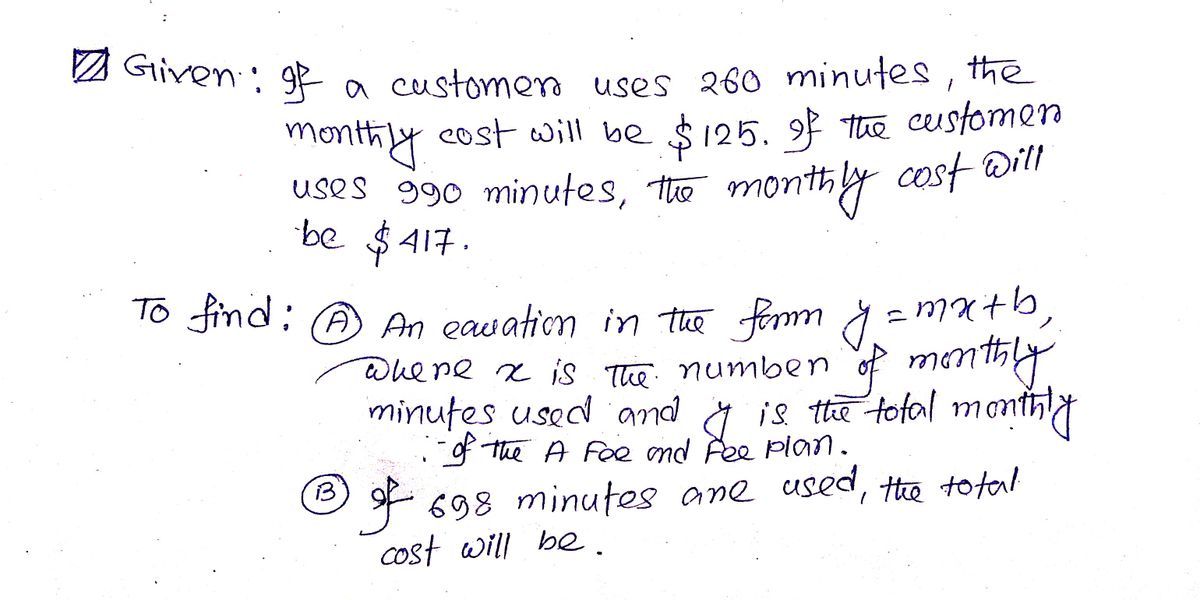 Given: If a customer uses 260 minutes, the
monthly cost will be $125. If the customer
uses 990 minutes, the monthly cost will
be $417.
To find: (A) An equation in the form y = mx+b,
where x is the number of monthly
minutes used and y is the total monthly
of the A Foe and Fee plan.
(B) If 698 minutes are used, the total
cost will be.